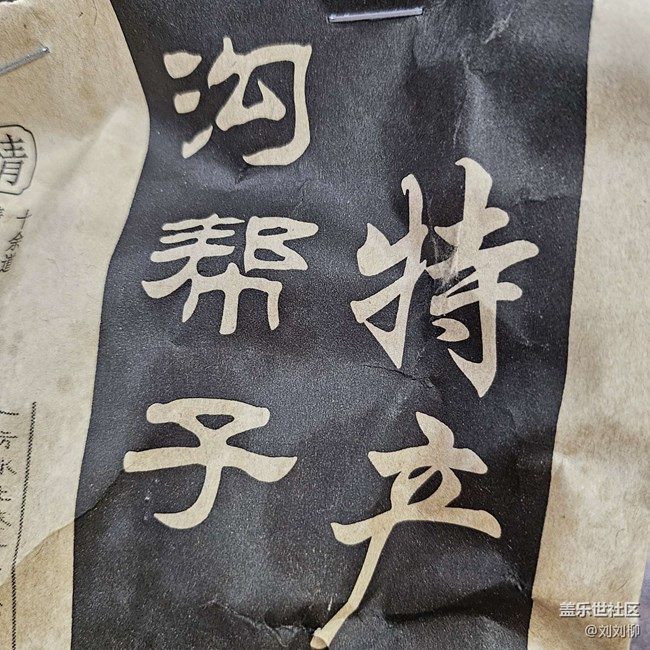 沟帮子
特产
盖乐世社区
@刘刘柳